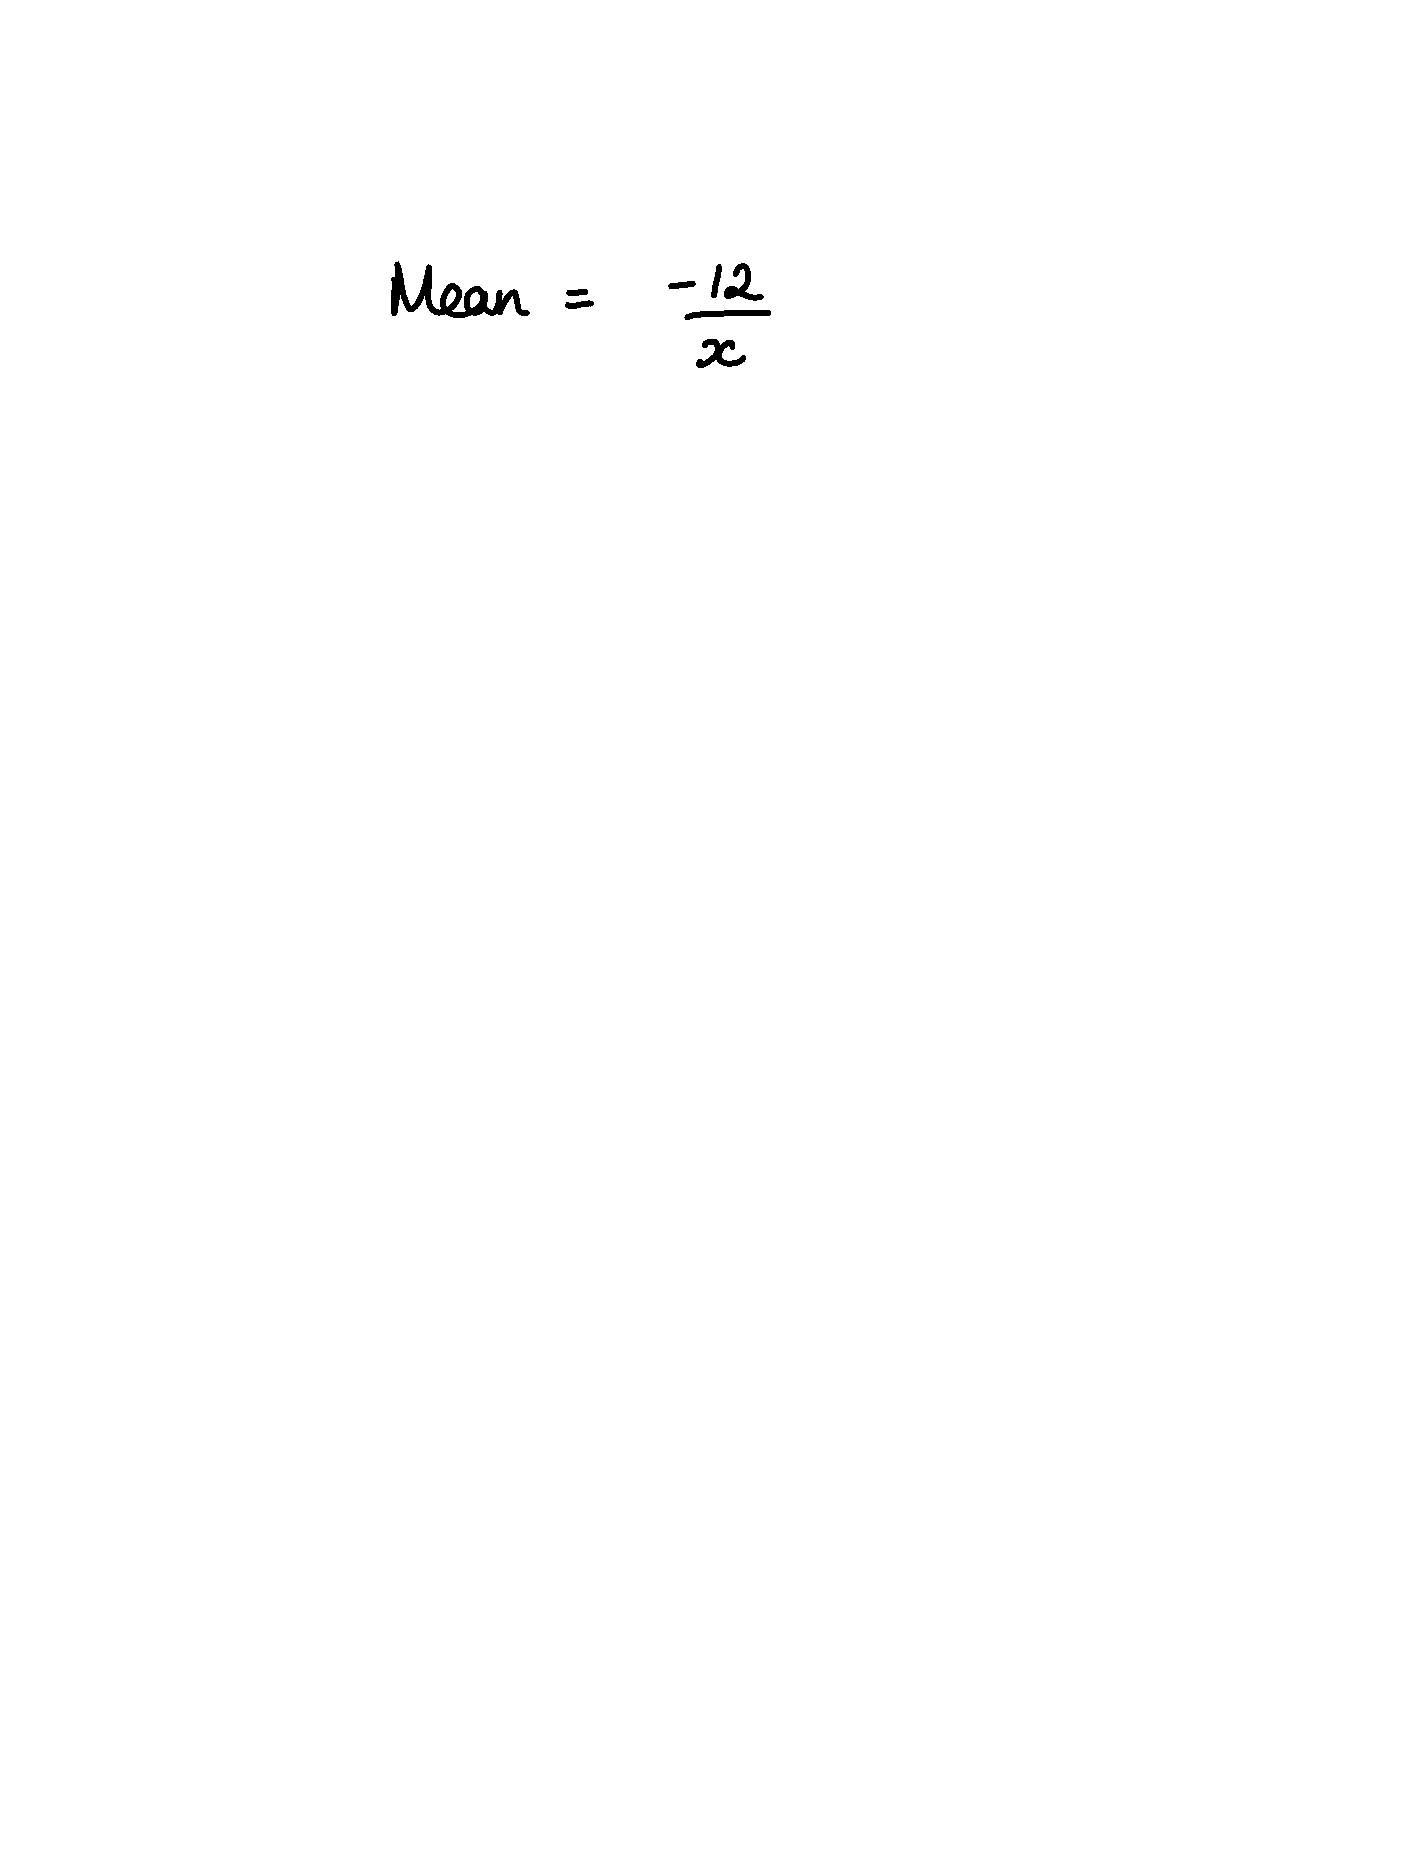 Mean = -12
x